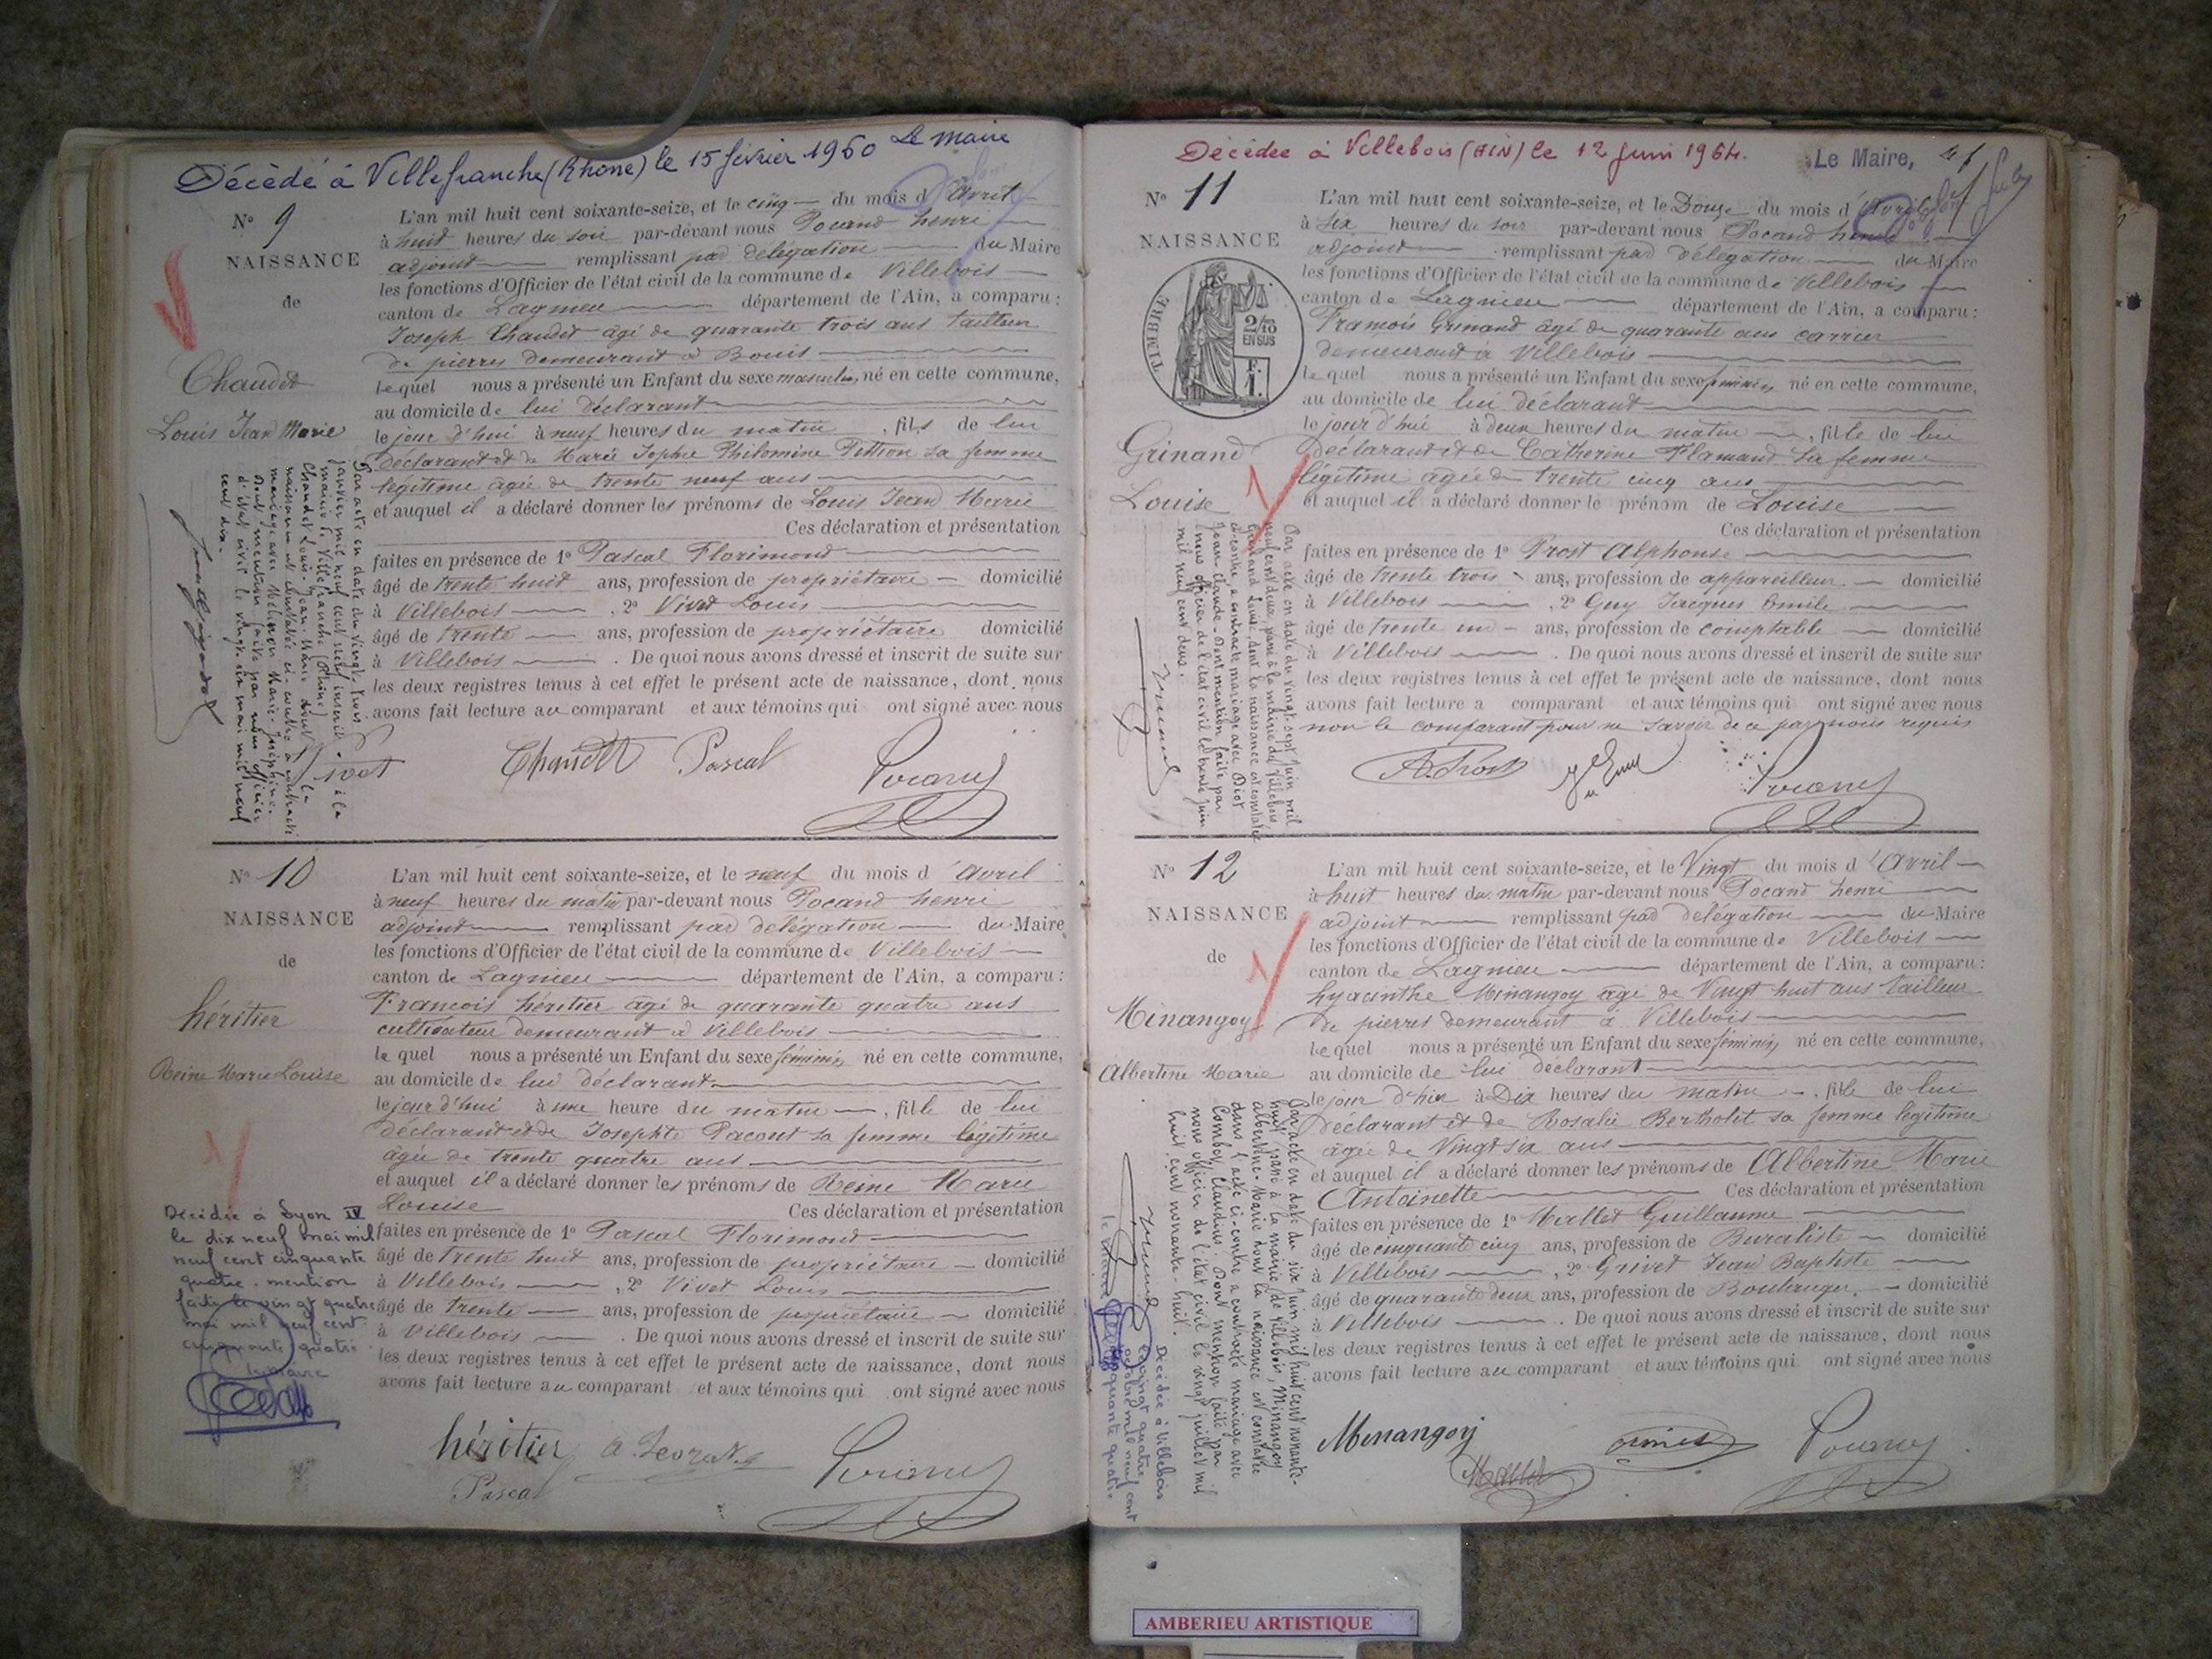 Décédé à Villefranche (Rhône) le 15 février 1960 Le Maire
N° 9
NAISSANCE
de
Chaudet
Louis Jean Marie
L'an mil huit cent soixante-seize, et le cinq du mois d'Avril
à huit heures du soir par-devant nous Pocand henri
adjoint remplissant par délégation du Maire
les fonctions d'Officier de l'état civil de la commune de Villebois
canton de Lagnieu département de l'Ain, a comparu :
Joseph Chaudet âgé de quarante trois ans tailleur
de pierres demeurant à Bouis
lequel nous a présenté un Enfant du sexe masculin, né en cette commune,
au domicile de lui déclarant
le jour d'hui à neuf heures du matin, fils de lui
déclarant et de Marie Sophie Philomine Pettion sa femme
légitime âgée de trente neuf ans
et auquel il a déclaré donner les prénoms de Louis Jean Marie
Ces déclaration et présentation
faites en présence de 1° Pascal Florimond
âgé de trente huit ans, profession de propriétaire domicilié
à Villebois, 2° Vivet Louis
âgé de trente ans, profession de propriétaire domicilié
à Villebois. De quoi nous avons dressé et inscrit de suite sur
les deux registres tenus à cet effet le présent acte de naissance, dont nous
avons fait lecture au comparant et aux témoins qui ont signé avec nous
Par acte en date du vingt-trois
janvier mil neuf cent dix inscrit à la
mairie de Villefranche (Rhône)
Chaudet Louis-Jean-Marie dont la
naissance est constatée ci-contre a contracté
mariage avec Marie-Joséphine.
Dont mention faite par nous officier
d'état civil le vingt-six mai mil neuf
cent dix.
Chaudet Pascal
N° 10
NAISSANCE
de
héritier
Reine Marie Louise
L'an mil huit cent soixante-seize, et le neuf du mois d'Avril
à neuf heures du matin par-devant nous Pocand henri
adjoint remplissant par délégation du Maire
les fonctions d'Officier de l'état civil de la commune de Villebois
canton de Lagnieu département de l'Ain, a comparu :
François héritier âgé de quarante quatre ans
cultivateur demeurant à Villebois
lequel nous a présenté un Enfant du sexe féminin, né en cette commune,
au domicile de lui déclarant
le jour d'hui à une heure du matin, fille de lui
déclarant et de Josephte Pacout sa femme légitime
âgée de trente quatre ans
et auquel il a déclaré donner les prénoms de Reine Marie
Louise Ces déclaration et présentation
faites en présence de 1° Pascal Florimond
âgé de trente huit ans, profession de propriétaire domicilié
à Villebois, 2° Vivet Louis
âgé de trente ans, profession de propriétaire domicilié
à Villebois. De quoi nous avons dressé et inscrit de suite sur
les deux registres tenus à cet effet le présent acte de naissance, dont nous
avons fait lecture au comparant et aux témoins qui ont signé avec nous
Décédée à Lyon IV
le dix neuf mai mil
neuf cent cinquante
quatre. mention
faite le vingt quatre
mai mil neuf cent
cinquante quatre
Le Maire
héritier
Pascal
Décédée à Villebois (AIN) le 12 Juin 1964. Le Maire,
N° 11
NAISSANCE
TIMBRE
2/10
EN SUS
F.
1.
Grinand
Louise
L'an mil huit cent soixante-seize, et le Douze du mois d'Avril
à six heures du soir par-devant nous Pocand henri
adjoint remplissant par délégation du Maire
les fonctions d'Officier de l'état civil de la commune de Villebois
canton de Lagnieu département de l'Ain, a comparu :
François Grinand âgé de quarante ans carrier
demeurant à Villebois
lequel nous a présenté un Enfant du sexe féminin, né en cette commune,
au domicile de lui déclarant
le jour d'hui à deux heures du matin, fille de lui
déclarant et de Catherine Flamand sa femme
légitime âgée de trente cinq ans
et auquel il a déclaré donner le prénom de Louise
Ces déclaration et présentation
faites en présence de 1° Prost Alphonse
âgé de trente trois ans, profession de appareilleur domicilié
à Villebois, 2° Guy Jacques Emile
âgé de trente un ans, profession de comptable domicilié
à Villebois. De quoi nous avons dressé et inscrit de suite sur
les deux registres tenus à cet effet le présent acte de naissance, dont nous
avons fait lecture a comparant et aux témoins qui ont signé avec nous
non le comparant pour ne savoir de ce par nous requis
Par acte en date du vingt-sept juin mil
neuf cent deux, passé à la mairie de Villebois
Grinand Louise, dont la naissance est constatée
ci-contre, a contracté mariage avec Diot
Jean-Claude. Dont mention faite par
nous officier de l'état civil le trente juin
mil neuf cent deux.
A. Prost
N° 12
NAISSANCE
de
Minangoy
Albertine Marie
L'an mil huit cent soixante-seize, et le Vingt du mois d'Avril
à huit heures du matin par-devant nous Pocand henri
adjoint remplissant par délégation du Maire
les fonctions d'Officier de l'état civil de la commune de Villebois
canton de Lagnieu département de l'Ain, a comparu :
hyacinthe Minangoy âgé de Vingt huit ans tailleur
de pierres demeurant à Villebois
lequel nous a présenté un Enfant du sexe féminin, né en cette commune,
au domicile de lui déclarant
le jour d'hier à Dix heures du matin, fille de lui
déclarant et de Rosalie Bertholet sa femme légitime
âgée de Vingt six ans
et auquel il a déclaré donner les prénoms de Albertine Marie
Antoinette Ces déclaration et présentation
faites en présence de 1° Mallet Guillaume
âgé de cinquante cinq ans, profession de Buraliste domicilié
à Villebois, 2° Grivet Jean Baptiste
âgé de quarante deux ans, profession de Boulanger domicilié
à Villebois. De quoi nous avons dressé et inscrit de suite sur
les deux registres tenus à cet effet le présent acte de naissance, dont nous
avons fait lecture au comparant et aux témoins qui ont signé avec nous
Par acte en date du six juin mil huit cent nonante-
huit, passé à la mairie de Villebois, Minangoy
Albertine-Marie dont la naissance est constatée
dans l'acte ci-contre a contracté mariage avec
Comboy Claudius. Dont mention faite par
nous officier de l'état civil le vingt juillet mil
huit cent nonante-huit.
Décédée à Villebois
le vingt quatre
octobre mil neuf cent
cinquante quatre
le maire
Minangoy
Mallet
AMBERIEU ARTISTIQUE